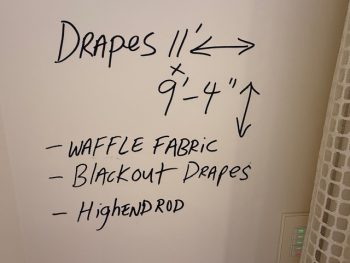 DRAPES 11' ↔
x
9'-4" ↕
- WAFFLE FABRIC
- Blackout Drapes
- HigHEND ROD